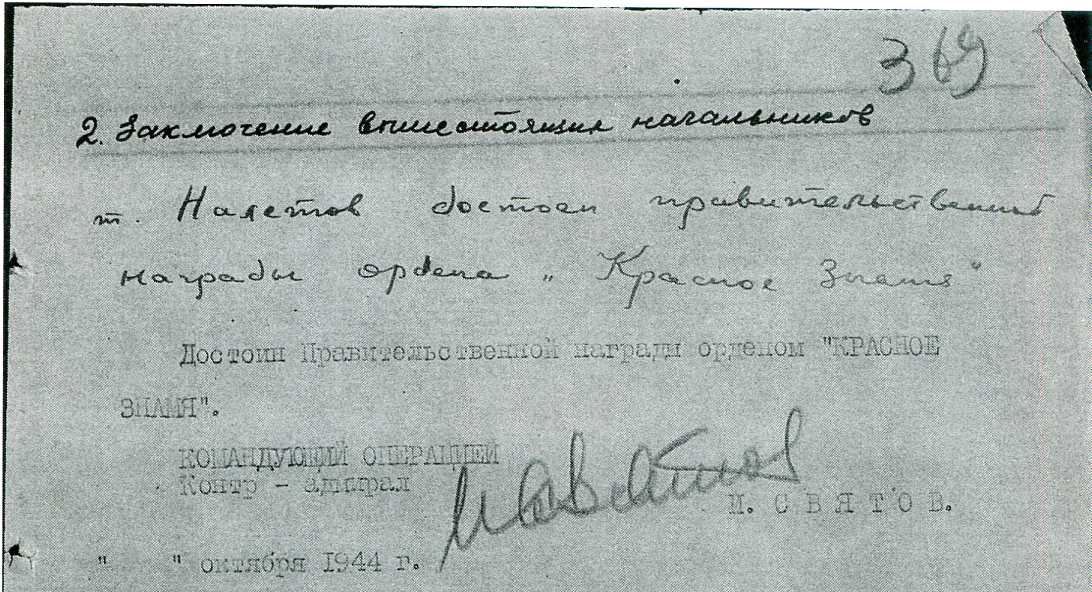 369
2. Заключение вышестоящих начальников
т. Налетов достоен правительственной
награды ордена „ Красное Знамя"
Достоин Правительственной награды орденом "КРАСНОЕ
ЗНАМЯ".
КОМАНДУЮЩИЙ ОПЕРАЦИЕЙ
Контр - адмирал
И. С В Я Т О В.
"      " октября 1944 г.